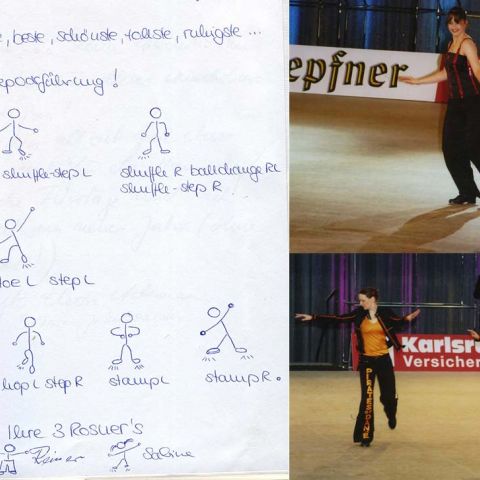 beste, schönste, tollste, ruhigste ...
shuffle-step L
shuffle R ballchange RL
shuffle-step R
toe L step L
hop L step R
stamp L
stamp R.
Ihre 3
Reiner
Sabine
epfner
Karlsru
Versicher
PIRATES